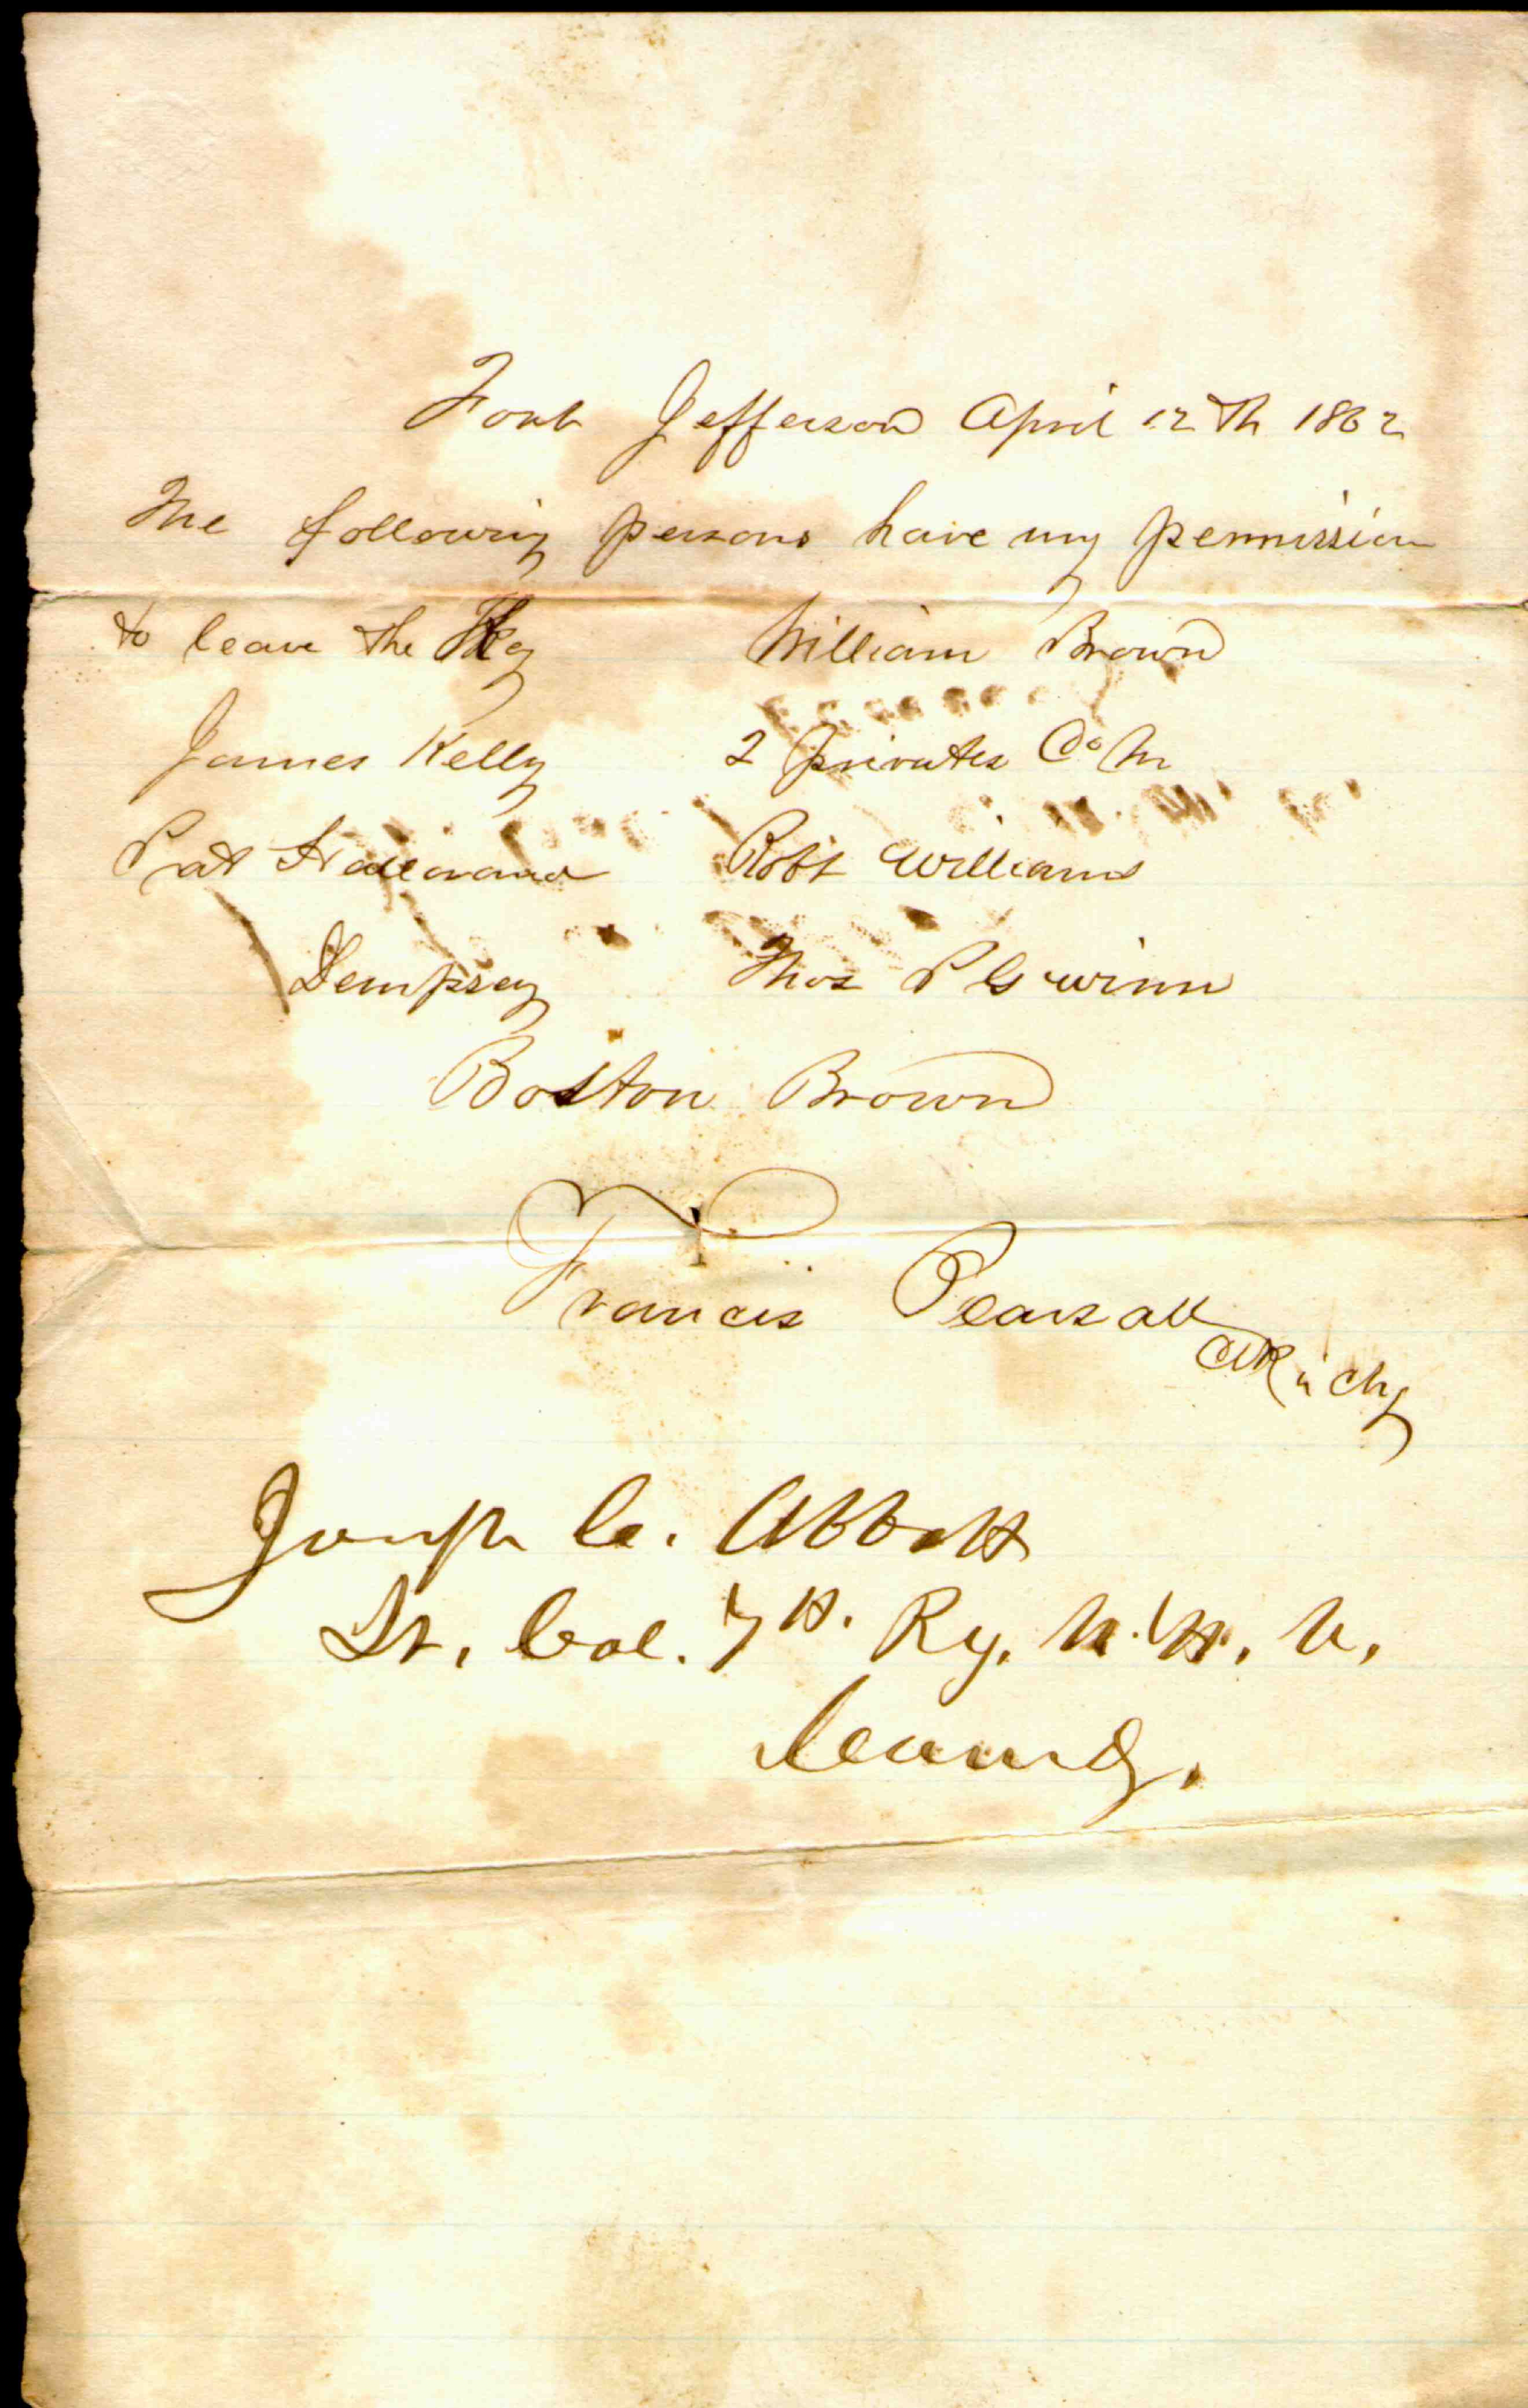 Fort Jefferson April 12th 1862
The following persons have my permission
to leave the Key William Brown
James Kelly 2 privates Co M
Pat Hallorand Robt Williams
Dempsey Thos P Gwinn
Boston Brown
Francis Pearsall
Joseph C. Abbott
Lt. Col. 7th. Rg. N.H. V.
Comdg.